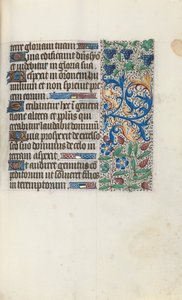 terre gloriam tuam
Quia edificavit dns syo
et videbitur in gloria sua
Respexit in oronem hu
milium et non sprevit pre
cem eorum
Scribantur hec in genera
tione altera et pplus qui
creabitur laudabit dominum
Quia prospexit de excelso
suo dominus de celo in
terram aspexit
Ut audiret gemitus co
peditorum ut solveret filios
interemptorum